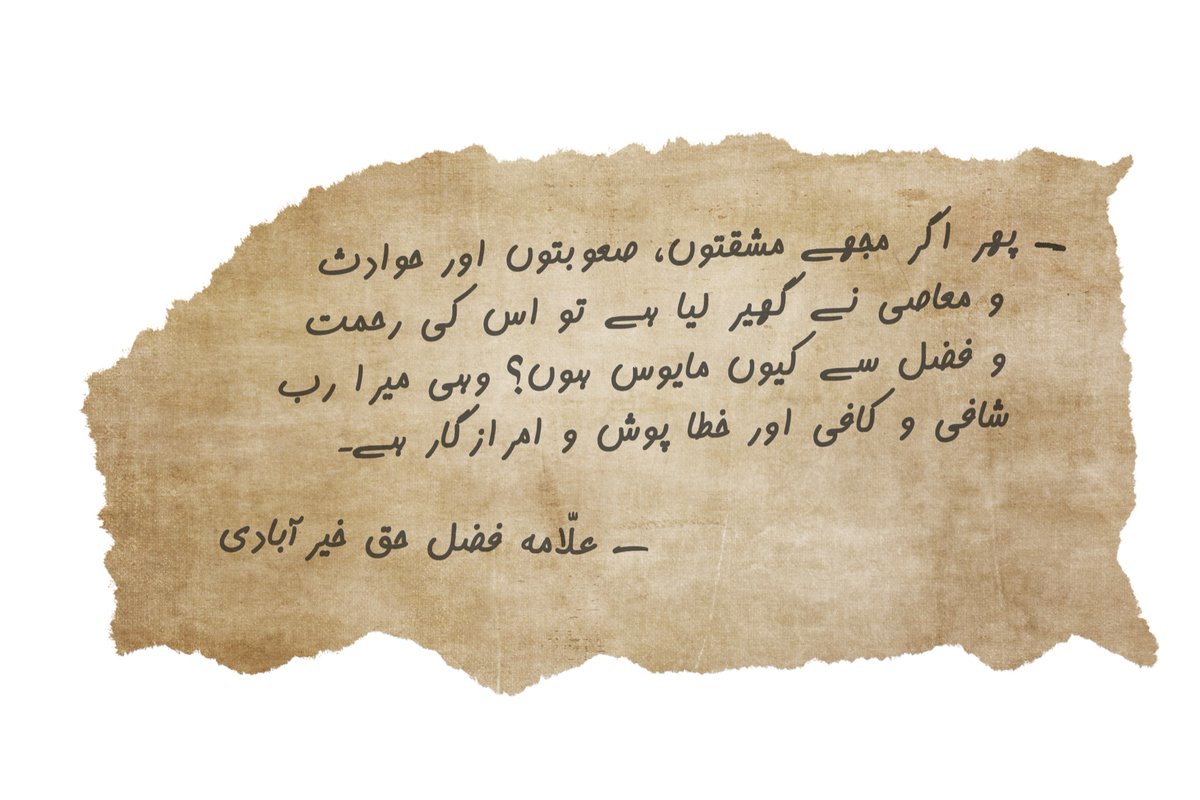 – پھر اگر مجھے مشقتوں، صعوبتوں اور حوادث
و معاصی نے گھیر لیا ہے تو اس کی رحمت
و فضل سے کیوں مایوس ہوں؟ وہی میرا رب
شافی و کافی اور خطا پوش و امرازگار ہے۔
– علّامہ فضل حق خیر آبادی